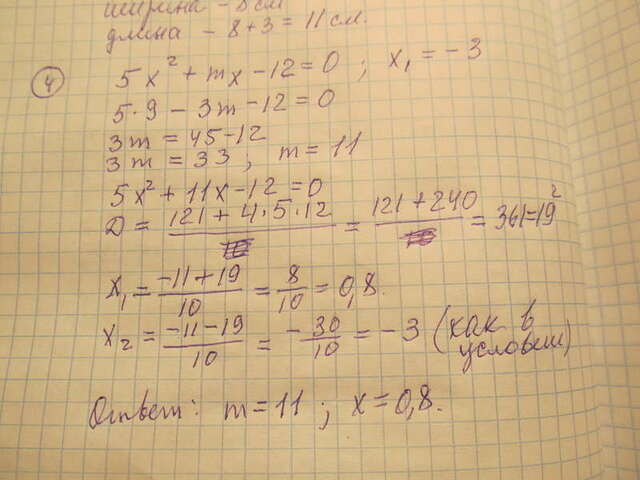 ширина - 8 см
длина - 8+3 = 11 см.
④ 5x² + mx - 12 = 0 ; x₁ = -3
5·9 - 3m - 12 = 0
3m = 45-12
3m = 33 ; m = 11
5x² + 11x - 12 = 0
D = 121 + 4·5·12 = 121 + 240 = 361 = 19²
x₁ = -11+19 / 10 = 8/10 = 0,8.
x₂ = -11-19 / 10 = -30/10 = -3 (как в
условии)
Ответ: m = 11 ; x = 0,8.